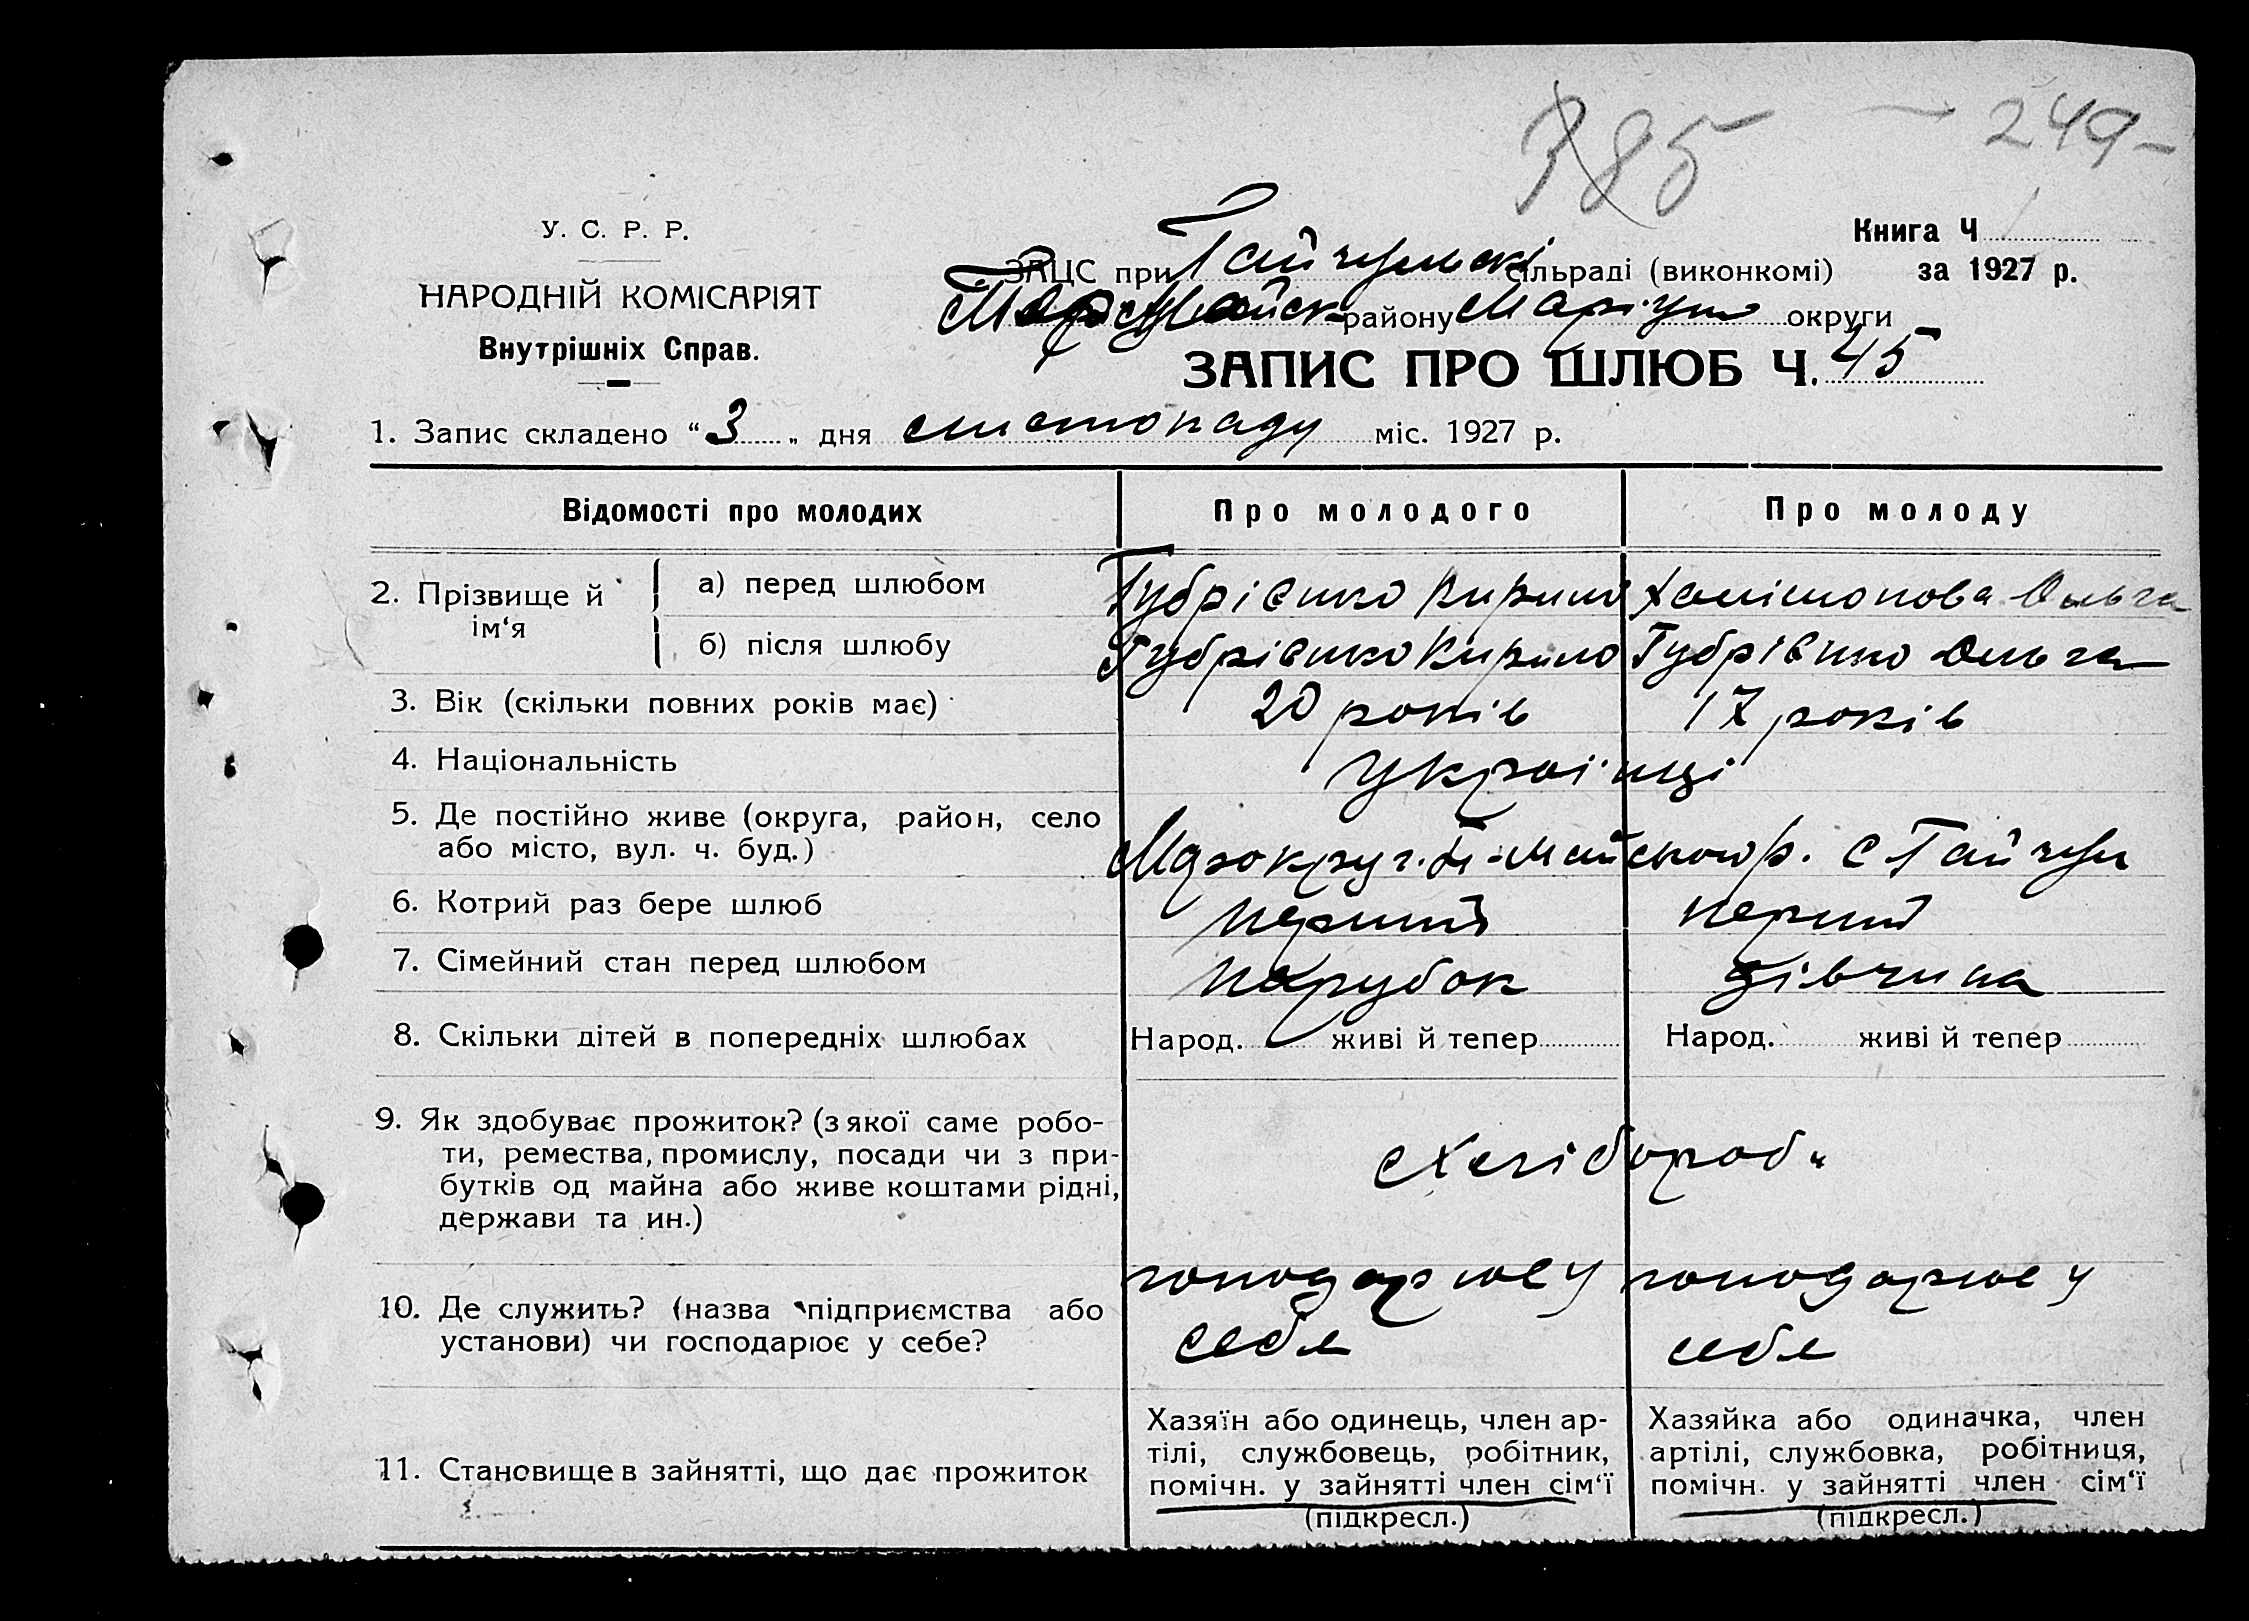 385 — 249 —
У. С. Р. Р.
НАРОДНІЙ КОМІСАРІЯТ
Внутрішніх Справ.
Книга Ч
ЗАЦС при Гайчульскі сільраді (виконкомі) за 1927 р.
району Маріуп округи
ЗАПИС ПРО ШЛЮБ Ч. 45
1. Запис складено "3" дня листопаду міс. 1927 р.
Відомості про молодих Про молодого Про молоду
2. Прізвище й ім'я
а) перед шлюбом Губрієнко Кирило Ольга
б) після шлюбу Губрієнко Кирило Губрієнко Ольга
3. Вік (скільки повних років має) 20 років 17 років
4. Національність Українці
5. Де постійно живе (округа, район, село
або місто, вул. ч. буд.) р. с Гайчул
6. Котрий раз бере шлюб перший перший
7. Сімейний стан перед шлюбом парубок дівчина
8. Скільки дітей в попередніх шлюбах Народ. живі й тепер Народ. живі й тепер
9. Як здобуває прожиток? (з якої саме робо-
ти, ремества, промислу, посади чи з при-
бутків од майна або живе коштами рідні,
держави та ин.)
Хлібороб
10. Де служить? (назва підприємства або
установи) чи господарює у себе?
господарює у
себе
господарює у
себе
11. Становище в зайнятті, що дає прожиток
Хазяїн або одинець, член ар-
тілі, службовець, робітник,
помічн. у зайнятті член сім'ї
(підкресл.)
Хазяйка або одиначка, член
артілі, службовка, робітниця,
помічн. у зайнятті член сім'ї
(підкресл.)